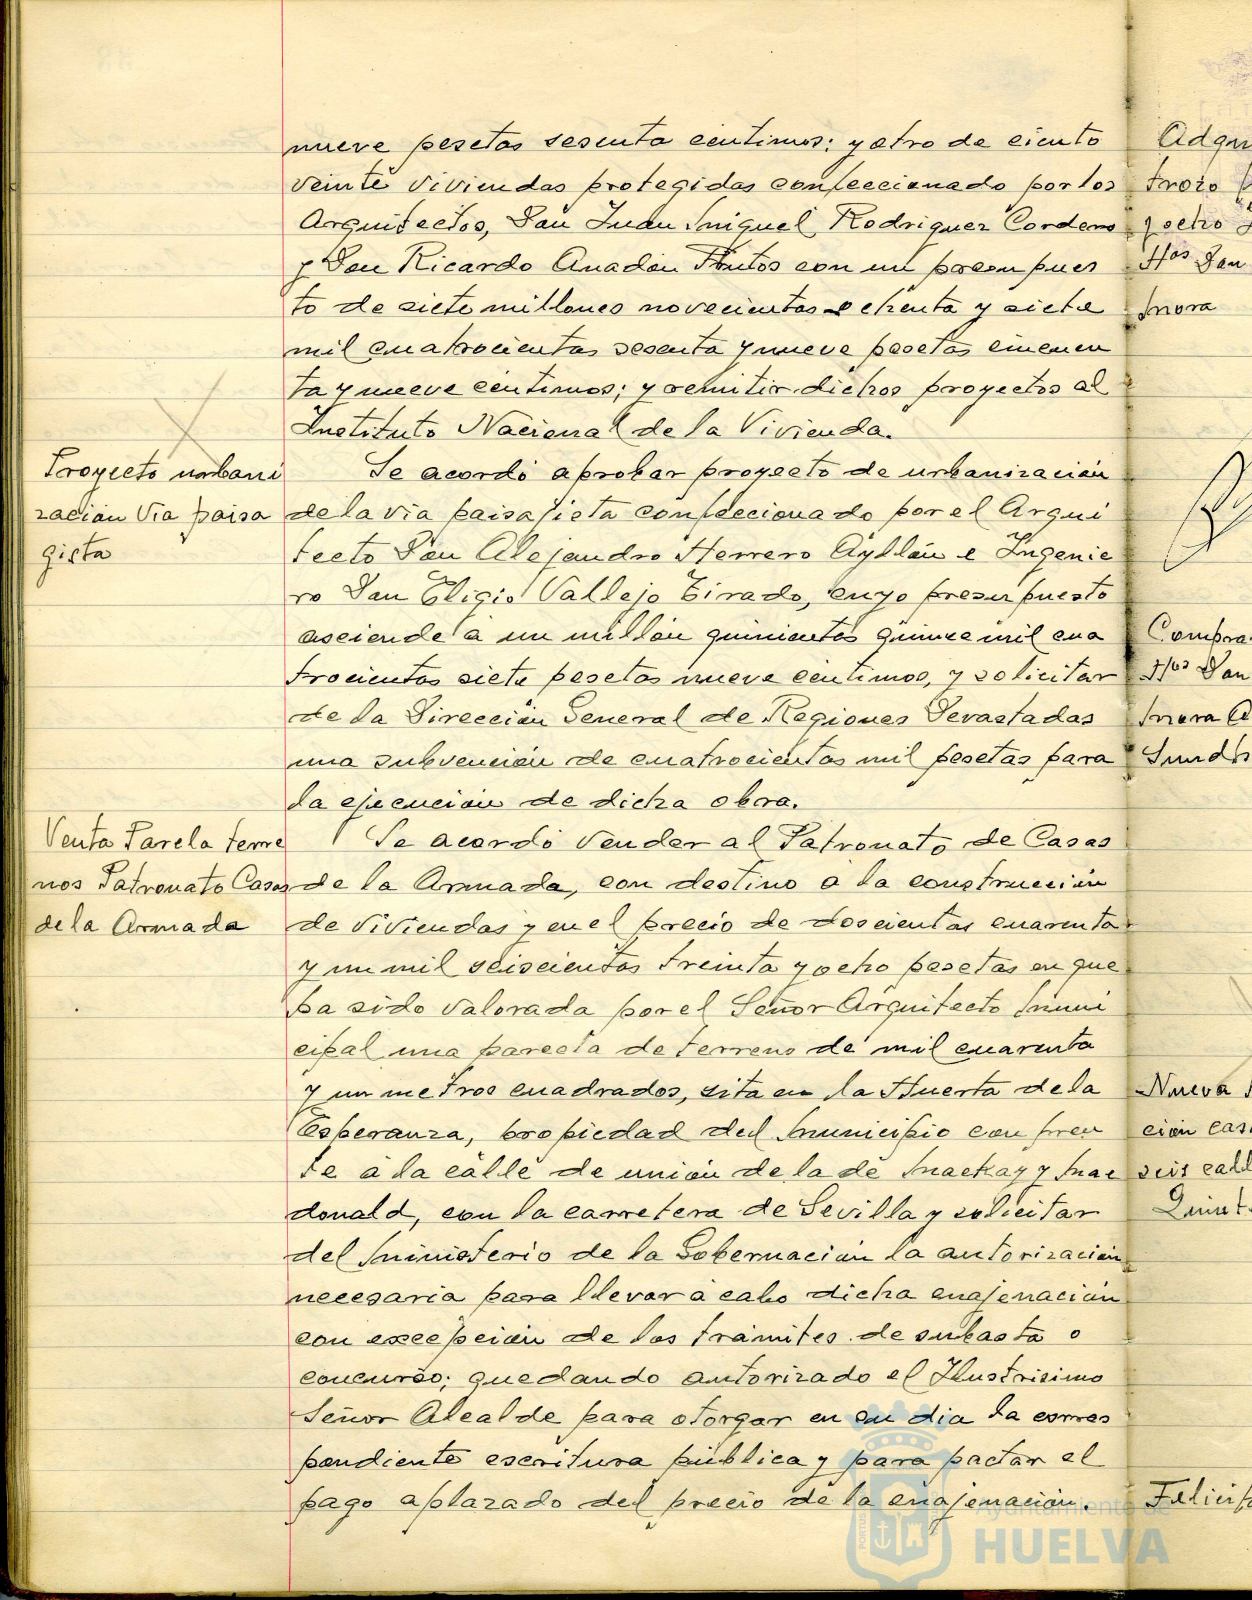 nueve pesetas sesenta centimos; y otro de ciento
veinte viviendas protegidas confeccionado por los
Arquitectos, Don Juan Miguel Rodriguez Cordero
y Don Ricardo Anadón Frutos con un presupues
to de siete millones novecientas ochenta y siete
mil cuatrocientas sesenta y nueve pesetas cincuen
ta y nueve centimos; y remitir dichos proyectos al
Instituto Nacional de la Vivienda.
Proyecto urbani
zación Vía paisa
gista
Se acordó aprobar proyecto de urbanización
de la via paisajista confeccionado por el Arqui
tecto Don Alejandro Herrero Ayllón e Ingenie
ro Don Eligio Vallejo Tirado, cuyo presupuesto
asciende a un millón quinientas quince mil cua
trocientas siete pesetas nueve centimos, y solicitar
de la Dirección General de Regiones Devastadas
una subvención de cuatrocientas mil pesetas para
la ejecución de dicha obra.
Venta Parcela terre
nos Patronato Casas
de la Armada
Se acordó vender al Patronato de Casas
de la Armada, con destino a la construcción
de viviendas y en el precio de doscientas cuarenta
y un mil seiscientas treinta y ocho pesetas en que
ha sido valorada por el Señor Arquitecto Muni
cipal una parcela de terreno de mil cuarenta
y un metros cuadrados, sita en la Huerta de la
Esperanza, propiedad del Municipio con fren
te á la calle de unión de la de Mackay y Mac
donald, con la carretera de Sevilla y solicitar
del Ministerio de la Gobernación la autorización
necesaria para llevar á cabo dicha enajenación
con excepción de los trámites de subasta o
concurso; quedando autorizado el Ilustrisimo
Señor Alcalde para otorgar en su dia la corres
pondiente escritura pública y para pactar el
pago aplazado del precio de la enajenación.
Adqui
trozo
y ocho
Hos Dan
Mora
Compra
Hos Dan
Mora
Nueva
ción cas
seis call
Quint
Felicit
Ayuntamiento de
HUELVA